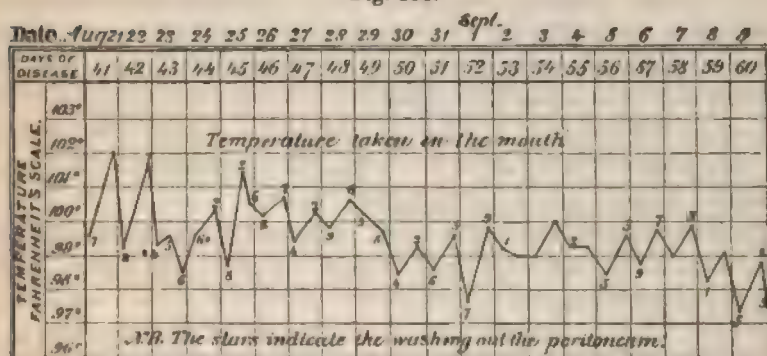 Sept.
Date. Aug 21 22 23 24 25 26 27 28 29 30 31 1 2 3 4 5 6 7 8 9
DAYS OF DISEASE 41 42 43 44 45 46 47 48 49 50 51 52 53 54 55 56 57 58 59 60
TEMPERATURE FAHRENHEIT'S SCALE.
103°
102° Temperature taken in the mouth
101°
100°
99°
98°
97°
96° N.B. The stars indicate the washing out the peritoneum.